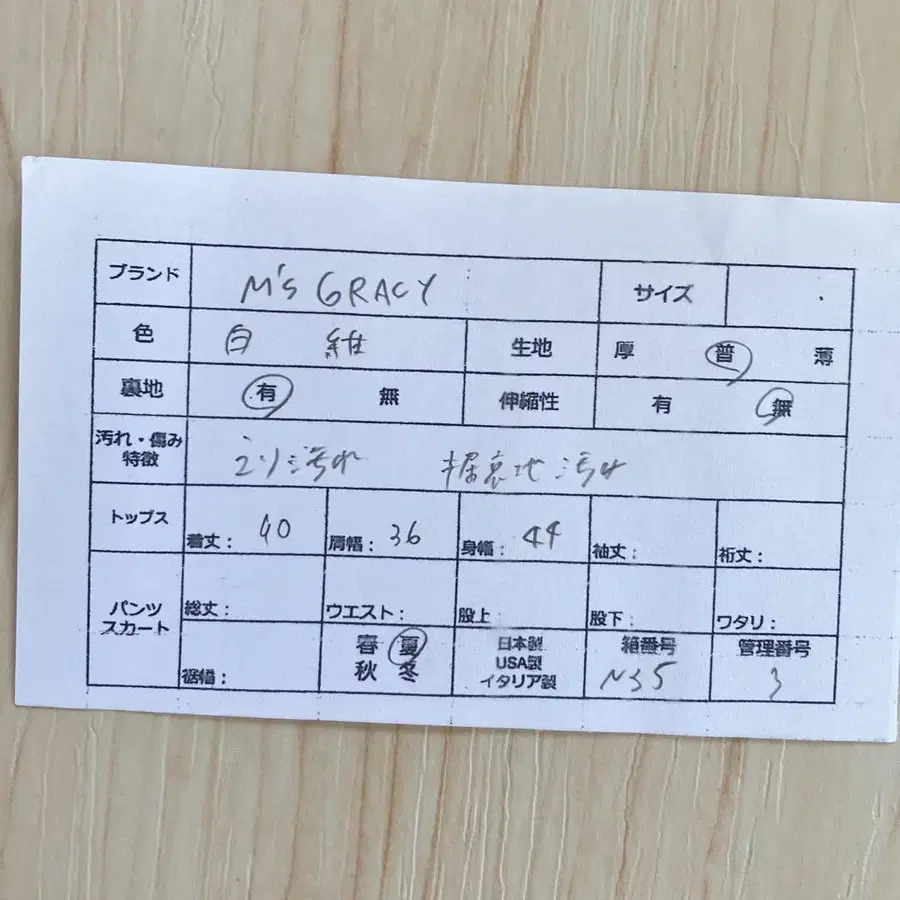 ブランド M's GRACY サイズ
色 白 維 生地 厚 普 薄
裏地 有 無 伸縮性 有 無
汚れ・傷み
特徴 エリ汚れ 裏地汚れ
トップス 着丈: 肩幅: 36 身幅: 44 袖丈: 裄丈:
パンツ
スカート 総丈: ウエスト: 股上 股下: ワタリ:
裾幅: 春 夏
秋 冬
日本製
USA製
イタリア製
箱番号
N35
管理番号
3